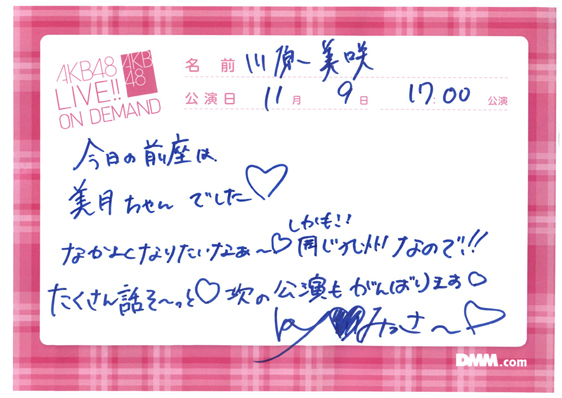 AKB48
LIVE!!
ON DEMAND
AKB
48
名前 川原美咲
公演日 11月 9日 17:00 公演
今日の前座は
美月ちゃん でした♡
なかよくなりたいなぁ〜♡ しかも!! 同じ九州なので!!
たくさん話そ〜っと♡ 次の公演もがんばりまぁ♡
by ♥みっさ〜♡
DMM.com